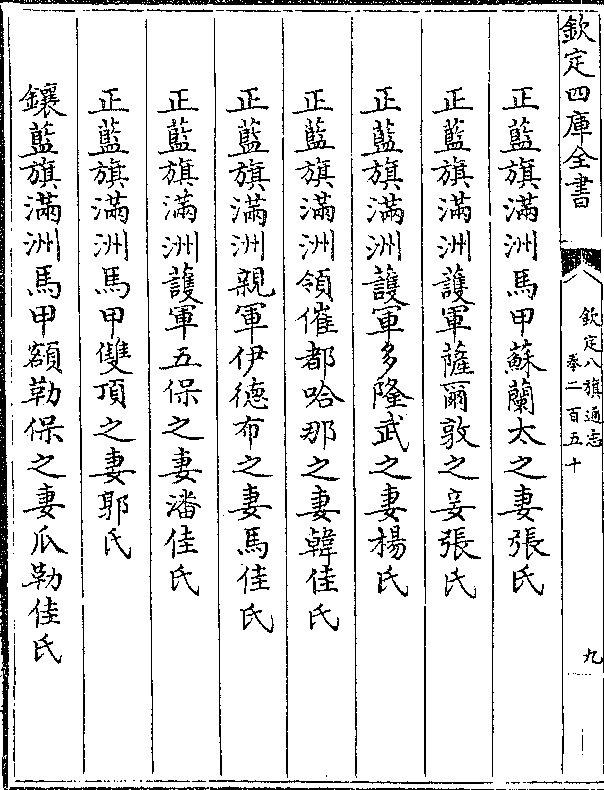 欽定四庫全書
欽定八旗通志
卷二百五十
九
正藍旗滿洲馬甲蘇蘭太之妻張氏
正藍旗滿洲護軍薩爾敦之妾張氏
正藍旗滿洲護軍多隆武之妻楊氏
正藍旗滿洲領催都哈那之妻韓佳氏
正藍旗滿洲親軍伊德布之妻馬佳氏
正藍旗滿洲護軍五保之妻潘佳氏
正藍旗滿洲馬甲雙頂之妻郭氏
鑲藍旗滿洲馬甲額勒保之妻瓜勒佳氏